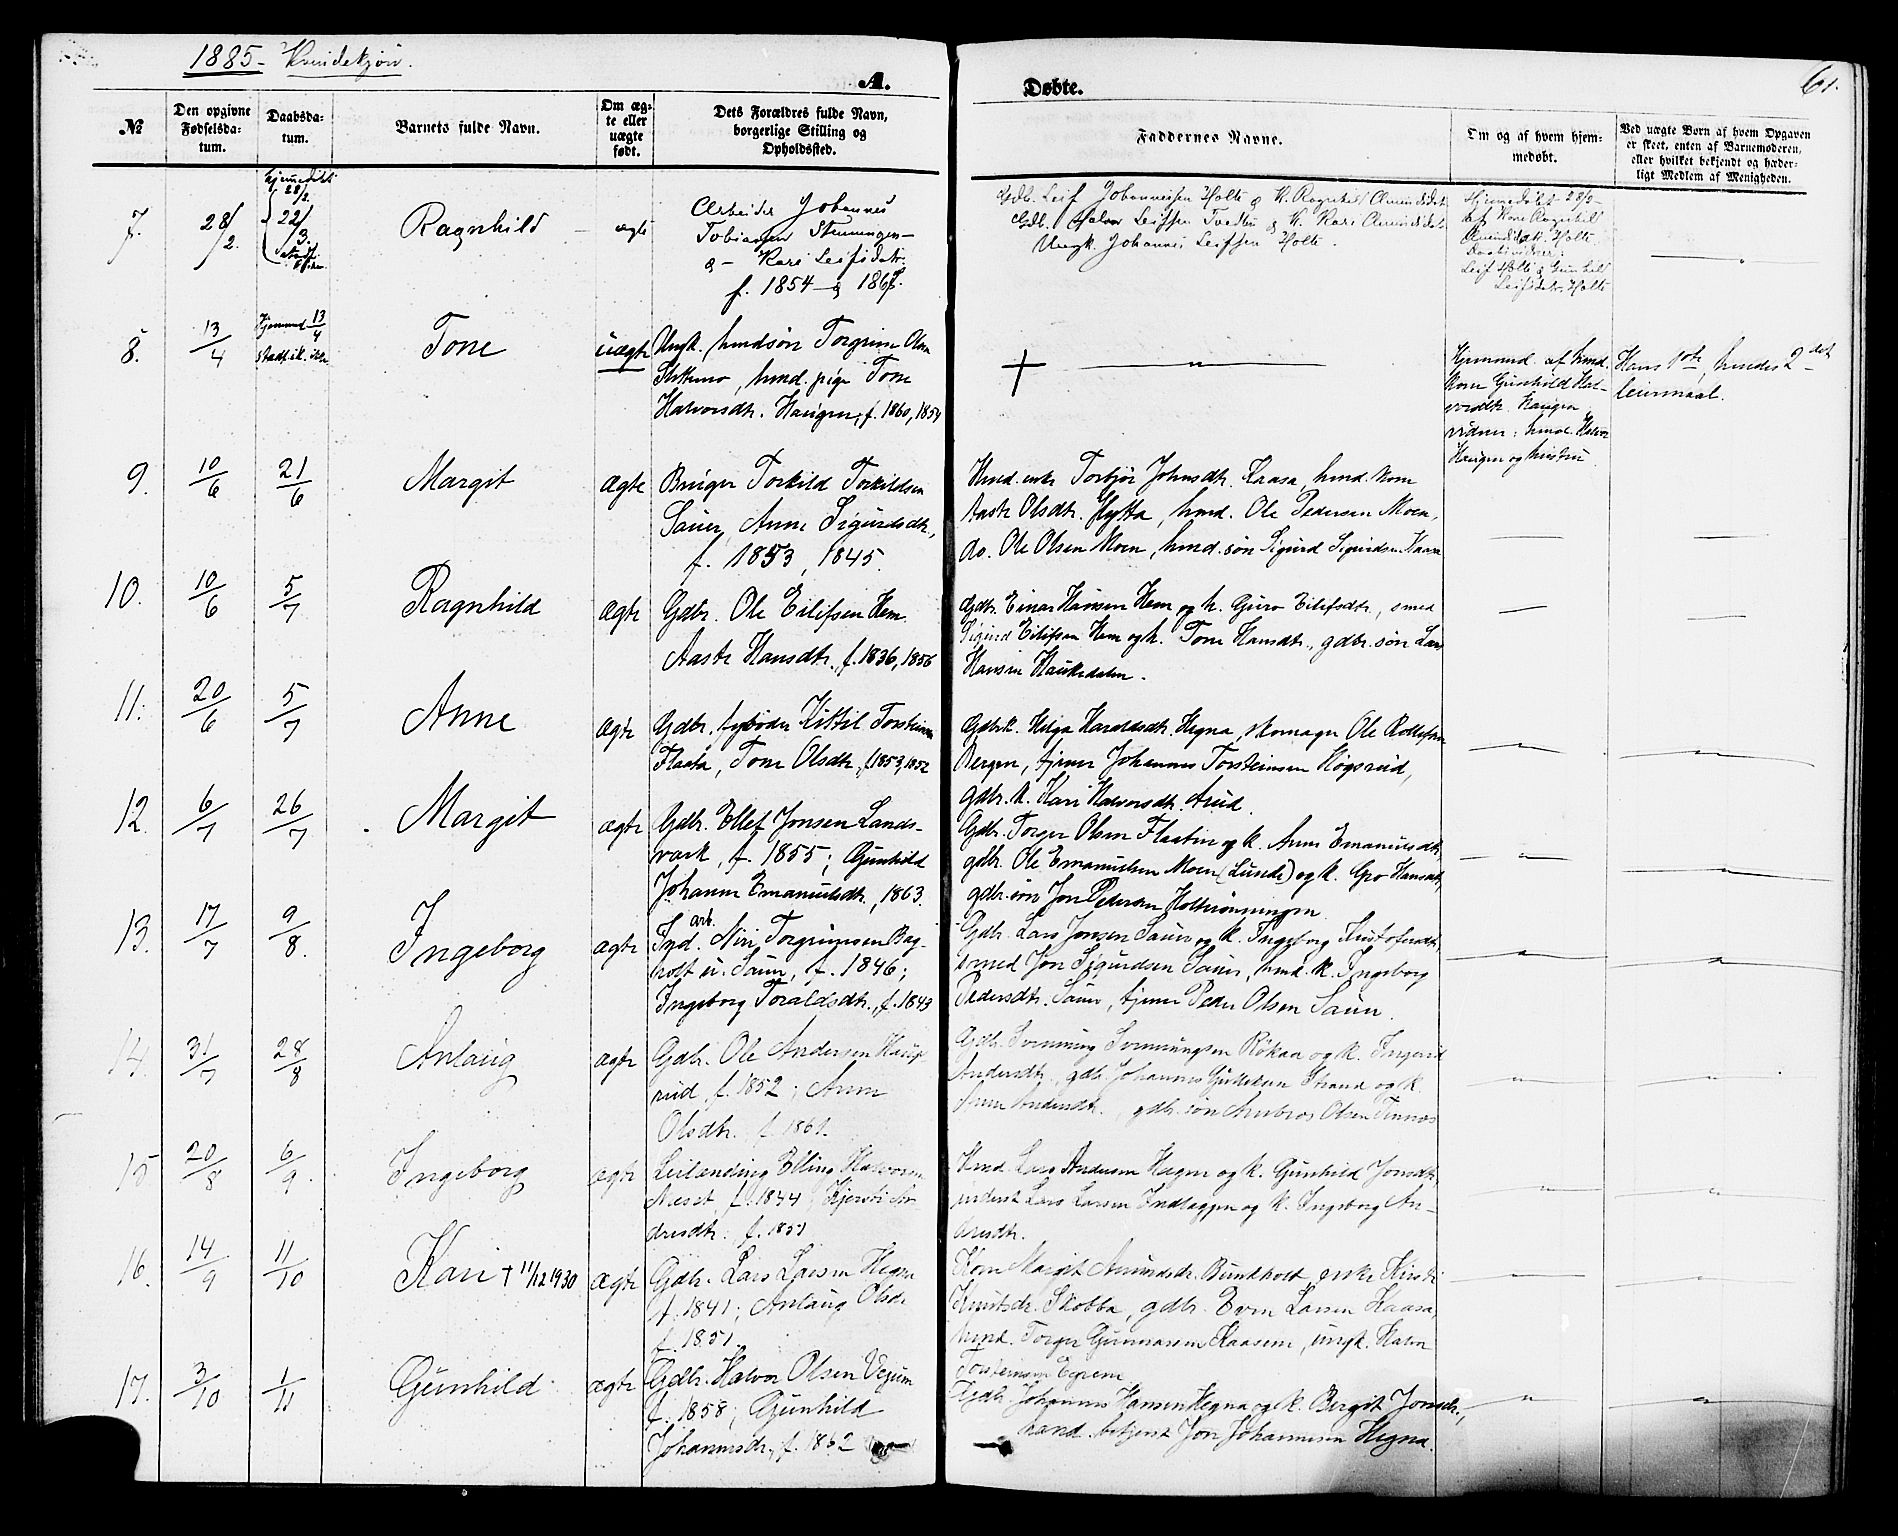 1885 - Kvindekjøn.
A. Døbte.
61.
№
Den opgivne Fødselsda-
tum.
Daabsda-
tum.
Barnets fulde Navn.
Om æg-
te eller
uægte
født.
Dets Forældres fulde Navn,
borgerlige Stilling og
Opholdssted.
Faddernes Navne.
Om og af hvem hjem-
medøbt.
Ved uægte Børn af hvem Opgaven
er skeet, enten af Barnemoderen,
eller hvilket bekjendt og hæder-
ligt Medlem af Menigheden.
7. 28/2. hjemedøbt 28/2. 22/3. Ragnhild ægte
Arbeider Johannes
Tobiassen
& - Kari Leifsdtr.
f. 1854 - &
Gdb. Leif Johannessen Holte & K. Ragnhild Amundsdtr.
Gdb. Halvor Leifsen Tvedten & K. Kari Amundsdtr.
Ungk. Johannes Leifsen Holte.
Hjemedøbt 28/2 -
af Kone Ragnhild
Amundsdatr. Holte
Leif Holte & Gunhild
Leifsdatr. Holte
8. 13/4 Hjemmed. 13/4 stadf. ik. Tone uægte
Ungk. husmdsøn Torgrim Olsen
, husmd. pige Tone
Halvorsdtr. Haugen, f. 1860, 1854
+ - " -
Hjemmed. af husmd.
kone Gunhild Hal-
vorsdtr. Haugen
vidner: husmd. Halvor
Haugen og hustru
Hans 1ste, hendes 2det
leiermaal.
9. 10/6 21/6 Margit ægte
Bruger Torkild Torkildsen
Sauer, Anne Sigurdsdtr.,
f. 1853, 1845.
Husmd. enke Torbjør Johnsdtr. Kaasa, husmd. kone
Aaste Olsdtr. Hytta, husmd. Ole Pedersen Moen,
do. Ole Olsen Moen, husmd. søn Sigurd Sigurdsen Kaasa
10. 10/6 5/7 Ragnhild ægte
Gdbr. Ole Eilifsen Hem
Aaste Hansdtr., f. 1836, 1856
Gdbr. Einar Hansen Hem og k. Guro Eilifsdtr., smed
Sigurd Eilifsen Hem og k. Tone Hansdtr., gdbr. søn Lars
Hansen Haukedalen.
11. 20/6 5/7 Anne ægte
Gdbr. Kittil Torsteinsen
Flaata, Tone Olsdtr., f. 1853, 1852
Gdbr.k. Helga Haraldsdtr. Hegna, skomager Ole Rollefsen
Bergen, tjener Johannes Torsteinsen Høgsrud,
gdbr. k. Kari Halvorsdtr. Arud.
12. 6/7 26/7 Margit ægte
Gdbr. Ellef Jonsen Lands-
værk, f. 1855; Gunhild
Johanne Emanuelsdtr., 1863.
Gdbr. Torger Olsen Flaatin og k. Anne Emanuelsdtr.
gdbr. Ole Emanuelsen Moen (Lunde) og k. Gro Hansdtr.,
gdbr. søn Jon Pedersen Holtrønningen
13. 17/7 9/8. Ingeborg ægte
Jrd. arb. Niri Torgrimsen Bag-
holt u. Sauer, f. 1846;
Ingeborg Toraldsdtr., f. 1843
Gdbr. Lars Jonsen Sauer og k. Ingeborg Kristofersdtr.,
smed Jon Sigurdsen Sauer, husmd. k. Ingeborg
Pedersdtr. Sauer, tjener Peder Olsen Sauer.
14. 31/7 28/8 Anlaug ægte
Gdbr. Ole Andersen Haug-
rud, f. 1852; Anne
Olsdtr. f. 1861.
Gdbr. Svenning Svenningsen Røkaas og k. Ingerid
Andersdtr., gdb. Johannes Gulleksen Strand og k.
Anne Andersdtr., gdbr. søn Ambros Olsen Tinnæs
15 20/8 6/9. Ingeborg ægte
Leilending Elling Halvorsen
Næset, f. 1844, Kjersti An-
dersdtr. f. 1851
Husmd. Lars Andersen Hagen og k. Gunhild Jonsdtr.
inderst Lars Larsen Indlæggen og k. Ingeborg An-
dersdtr.
16. 14/9 11/10 Kari † 11/12 1930 ægte
Gdbr. Lars Larsen Hegna
f. 1841; Anlaug Olsdtr.
f. 1851.
Kone Margit Amundsdtr. Bundholt, enke Kirsti
Knutsdtr. Skobba, gdbr. Even Larsen Kaasa,
husmd. Torger Gunnarsen Kaasen, ungk. Halvor
Torsteinsen
17. 3/10 1/11 Gunhild ægte
Gdbr. Halvor Olsen Vegum
f. 1858; Gunhild
Johannesdtr., f. 1862
Gdbr. Johannes Hansen Hegna og k. Bergit Jonsdtr.,
hand. betjent Jon Johannesen Hegna.